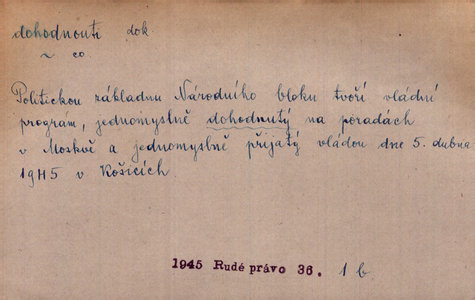 dohodnouti dok.
~ co
Politickou základnu Národního bloku tvoří vládní
program, jednomyslně dohodnutý na poradách
v Moskvě a jednomyslně přijatý vládou dne 5. dubna
1945 v Košicích.
1945 Rudé právo 36. 1 b